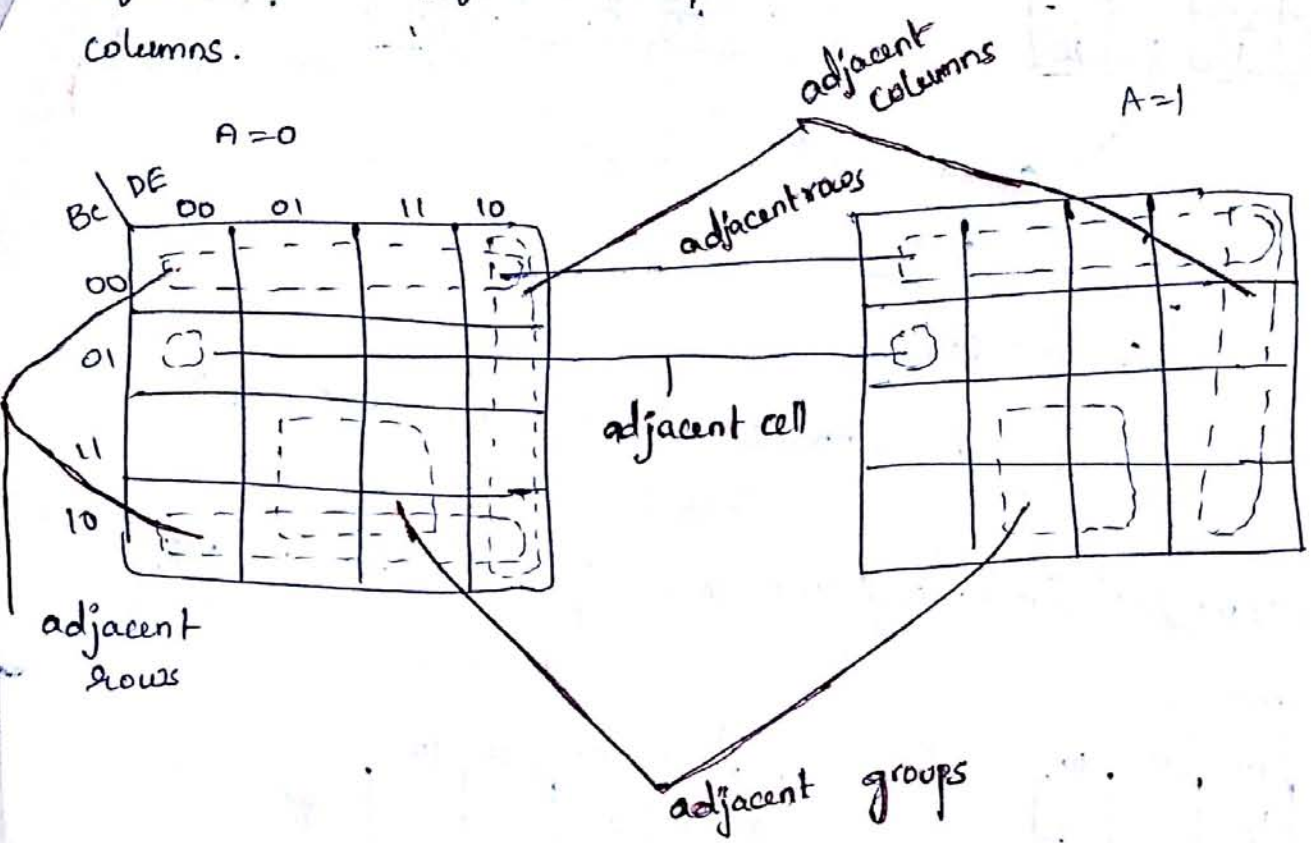 columns.
adjacent columns
A=0
A=1
BC DE
00 01 11 10
adjacent rows
00
01
adjacent cell
11
10
adjacent rows
adjacent groups